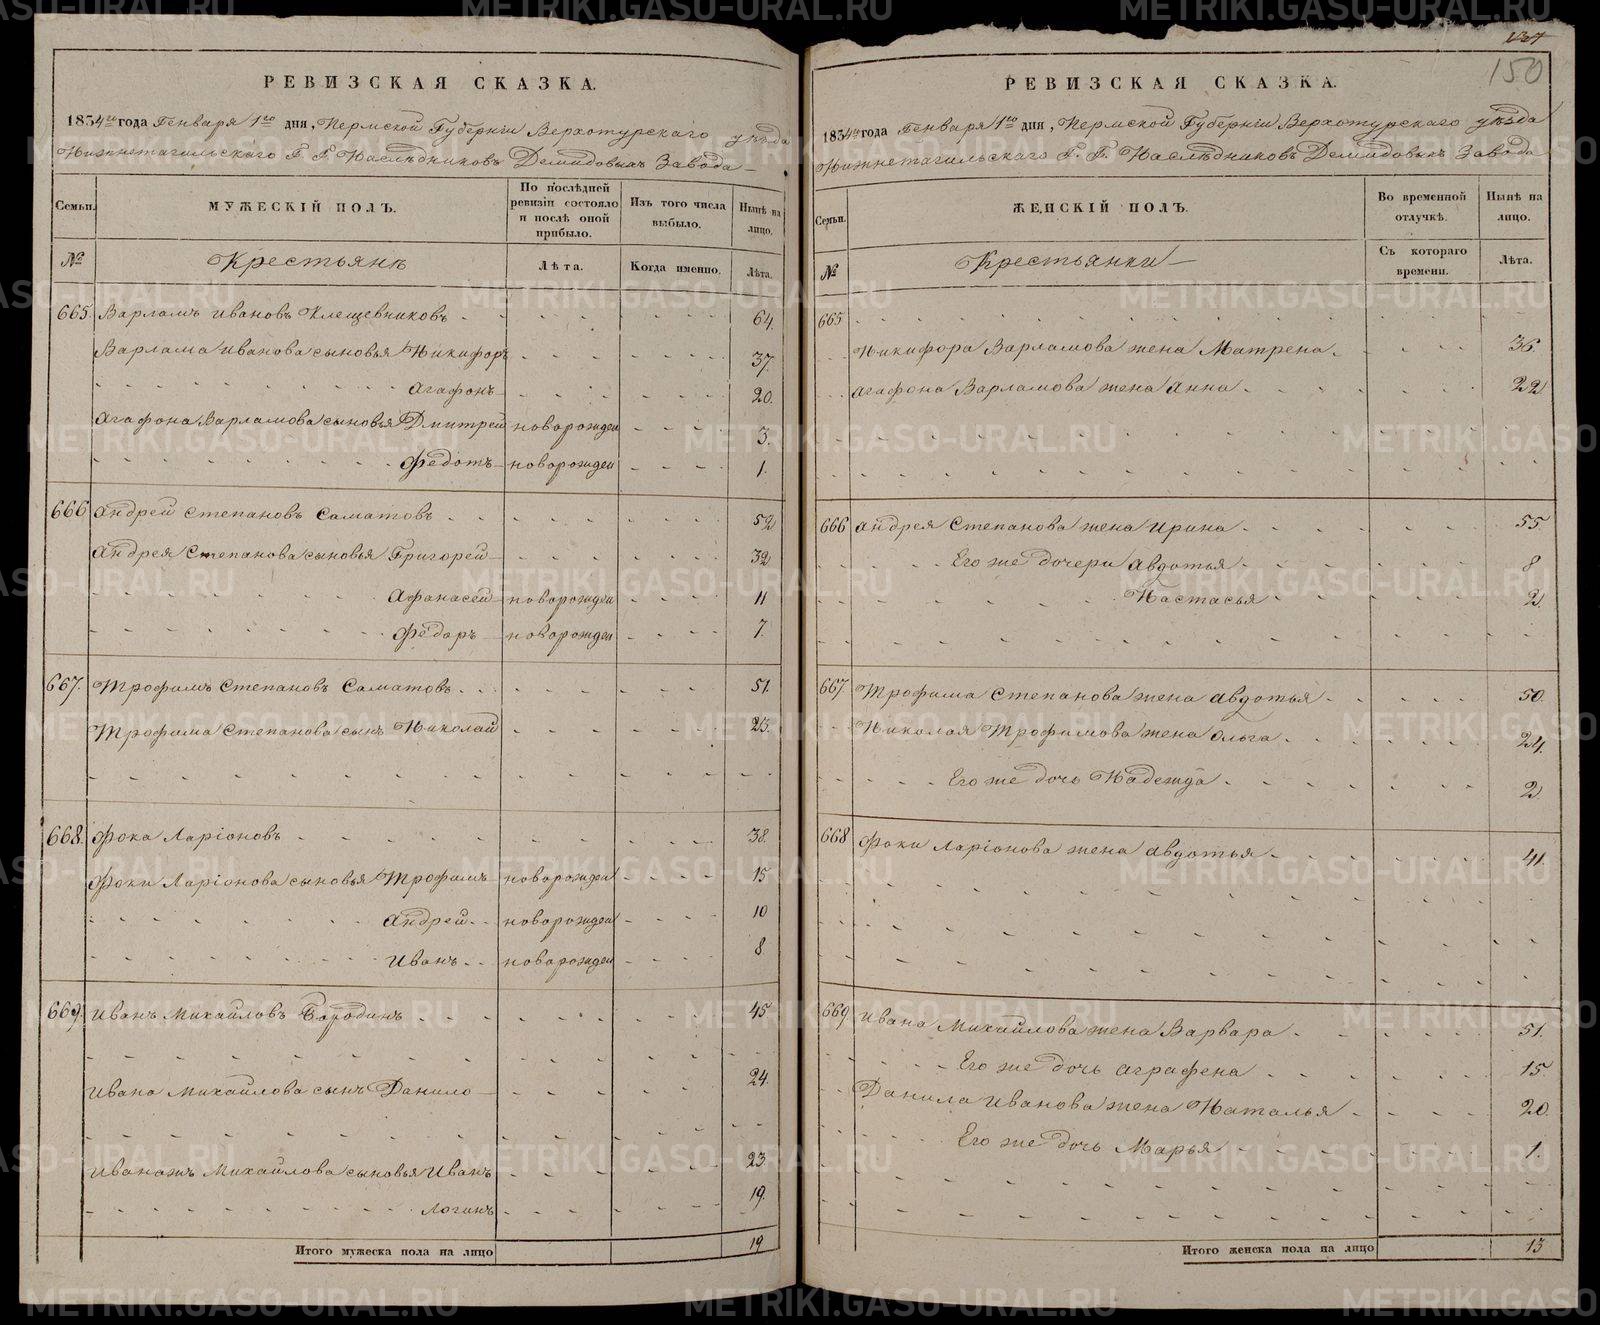 РЕВИЗСКАЯ СКАЗКА.
1834го года Генваря 1го дня, Пермской Губернiи Верхотурскаго уѣзда
Нижнетагильскаго Г. Г. Наслѣдниковъ Демидовыхъ Завода
Семьи. МУЖЕСКIЙ ПОЛЪ. По послѣдней ревизiи состояло и послѣ оной прибыло. Изъ того числа выбыло. Нынѣ на лицо.
№ Крестьянъ Лѣта. Когда именно. Лѣта.
665. Варламъ Ивановъ Клещевниковъ 64.
Варлама Иванова сыновья Никифоръ 37.
Агафонъ 20.
Агафона Варламова сыновья Дмитрей новорожден 3.
Федотъ новорожден 1.
666 Андрей Степановъ Саматовъ 52
Андрея Степанова сыновья Григорей 32
Афанасей новорожден 11
Федоръ новорожден 7.
667. Трофимъ Степановъ Саматовъ 51.
Трофима Степанова сынъ Николай 23.
668. Фока Ларiоновъ 38.
Фоки Ларiонова сыновья Трофимъ новорожден 15
Андрей новорожден 10
Иванъ новорожден 8
669. Иванъ Михайловъ Бородинъ 45
Ивана Михайлова сынъ Данило 24.
Михайлова сыновья Иванъ 23
Логинъ 19.
Итого мужеска пола на лицо 19
150
РЕВИЗСКАЯ СКАЗКА.
1834го года Генваря 1го дня, Пермской Губернiи Верхотурскаго уѣзда
Нижнетагильскаго Г. Г. Наслѣдниковъ Демидовыхъ Завода
Семьи. ЖЕНСКIЙ ПОЛЪ. Во временной отлучкѣ. Нынѣ на лицо.
№ Крестьянки Съ котораго времени. Лѣта.
665
Никифора Варламова жена Матрена 36.
Агафона Варламова жена Анна 22
666 Андрея Степанова жена Ирина 55.
Его же дочери Авдотья 8
Настасья 2
667 Трофима Степанова жена Авдотья 50.
Николая Трофимова жена Ольга 24.
Его же дочь Надежда 2
668 Фоки Ларiонова жена Авдотья 41.
669 Ивана Михайлова жена Варвара 51.
Его же дочь Аграфена 15.
Данила Иванова жена Наталья 20.
Его же дочь Марья 1.
Итого женска пола на лицо 13
METRIKI.GASO-URAL.RU